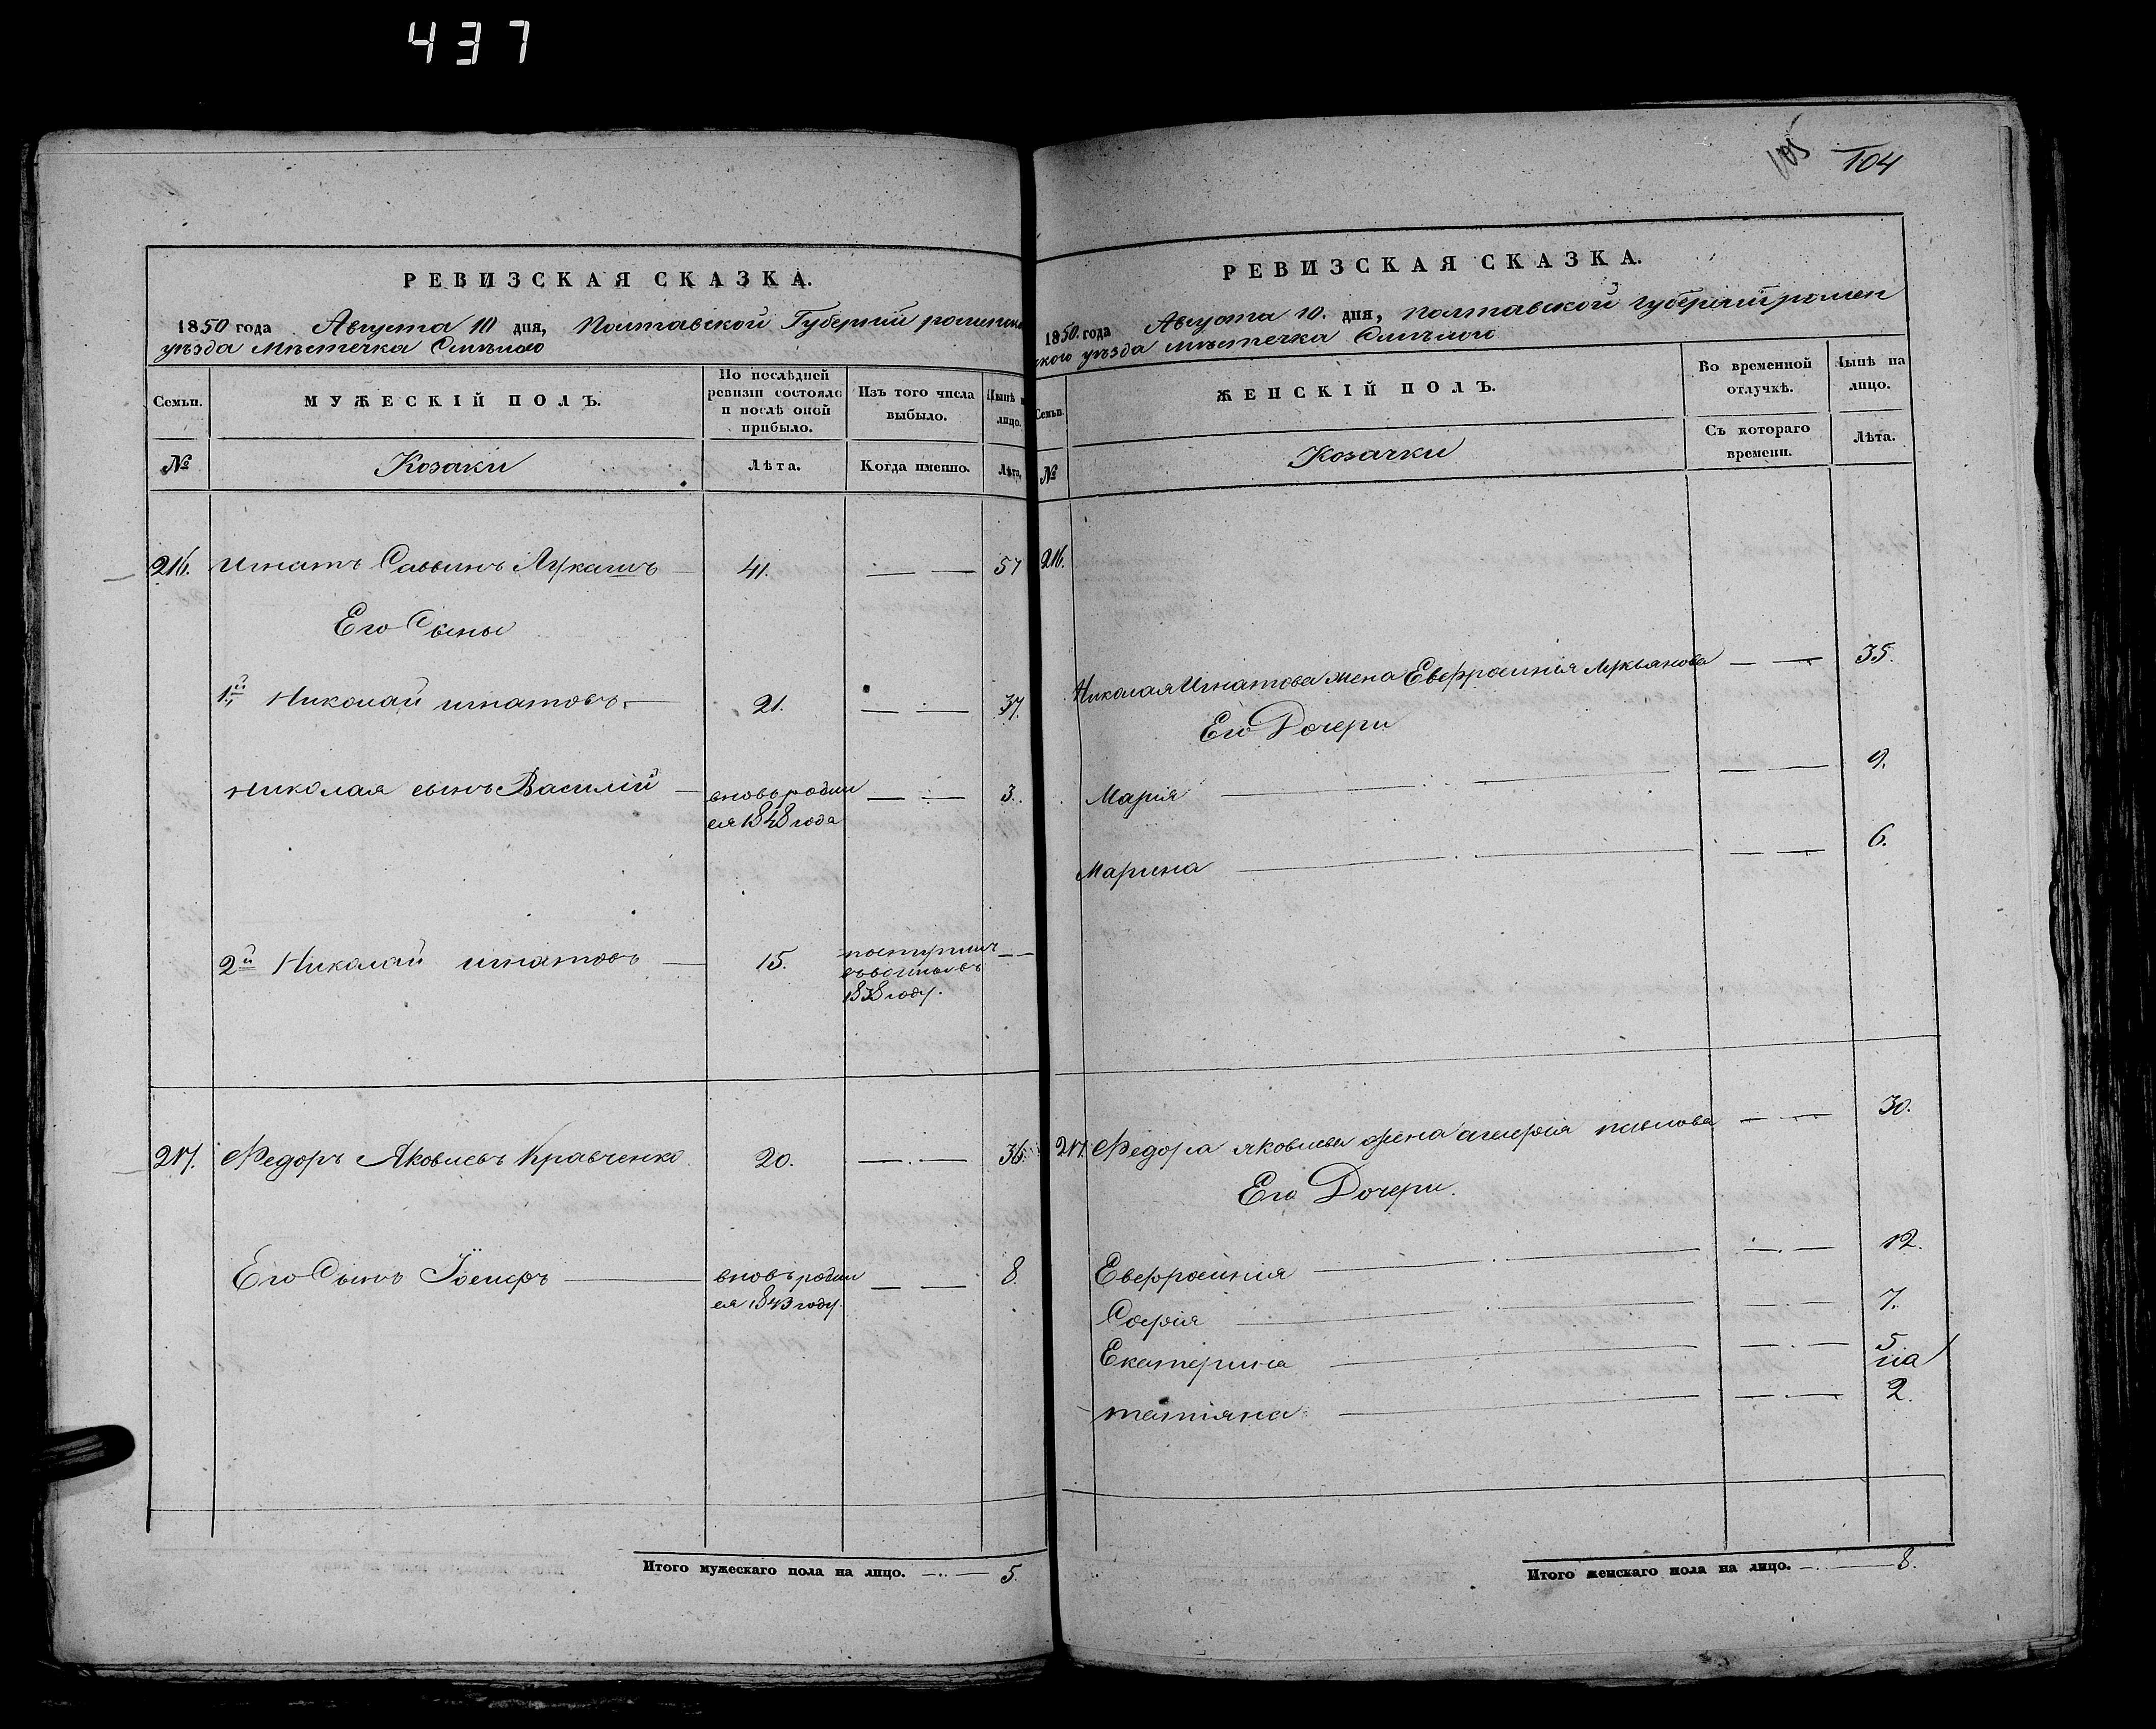 437
РЕВИЗСКАЯ СКАЗКА.
1850 года Августа 10 дня, Полтавской Губерній роменска
уѣзда мѣстечка Смѣлого
Семьи.
МУЖЕСКІЙ ПОЛЪ.
По послѣдней
ревизіи состояло
и послѣ оной
прибыло.
Изъ того числа
выбыло.
Нынѣ н
лицо.
№
Козаки
Лѣта.
Когда именно.
Лѣта.
216. Игнатъ Саввинъ Лукашъ 41. 57
Его Сыны
1й Николай игнатовъ 21. 37.
Николая сынъ Василій вновь родил 3.
ся 1848 года
2й Николай игнатовъ 15. поступилъ
1838 году.
217. Федоръ Яковлевъ Кравченко 20. 36.
Его Сынъ вновь родил 8.
ся 1843 году.
Итого мужескаго пола на лицо. 5.
105 104
РЕВИЗСКАЯ СКАЗКА.
1850 года Августа 10. дня, полтавской губерній ромен
ского уѣзда мѣстечка Смѣлого
Семьи.
ЖЕНСКІЙ ПОЛЪ.
Во временной
отлучкѣ.
Нынѣ на
лицо.
№
Козачки
Съ котораго
времени.
Лѣта.
216.
Николая Игнатова жена Евфросинія Лукьянова 35.
Его Дочери
Марія 9.
Марина 6.
217. Федора яковлева жена павлова 30.
Его Дочери.
Евфросинія 12.
Софія 7.
Екатерина 5.
на
татіяна 2.
Итого женскаго пола на лицо. 8.